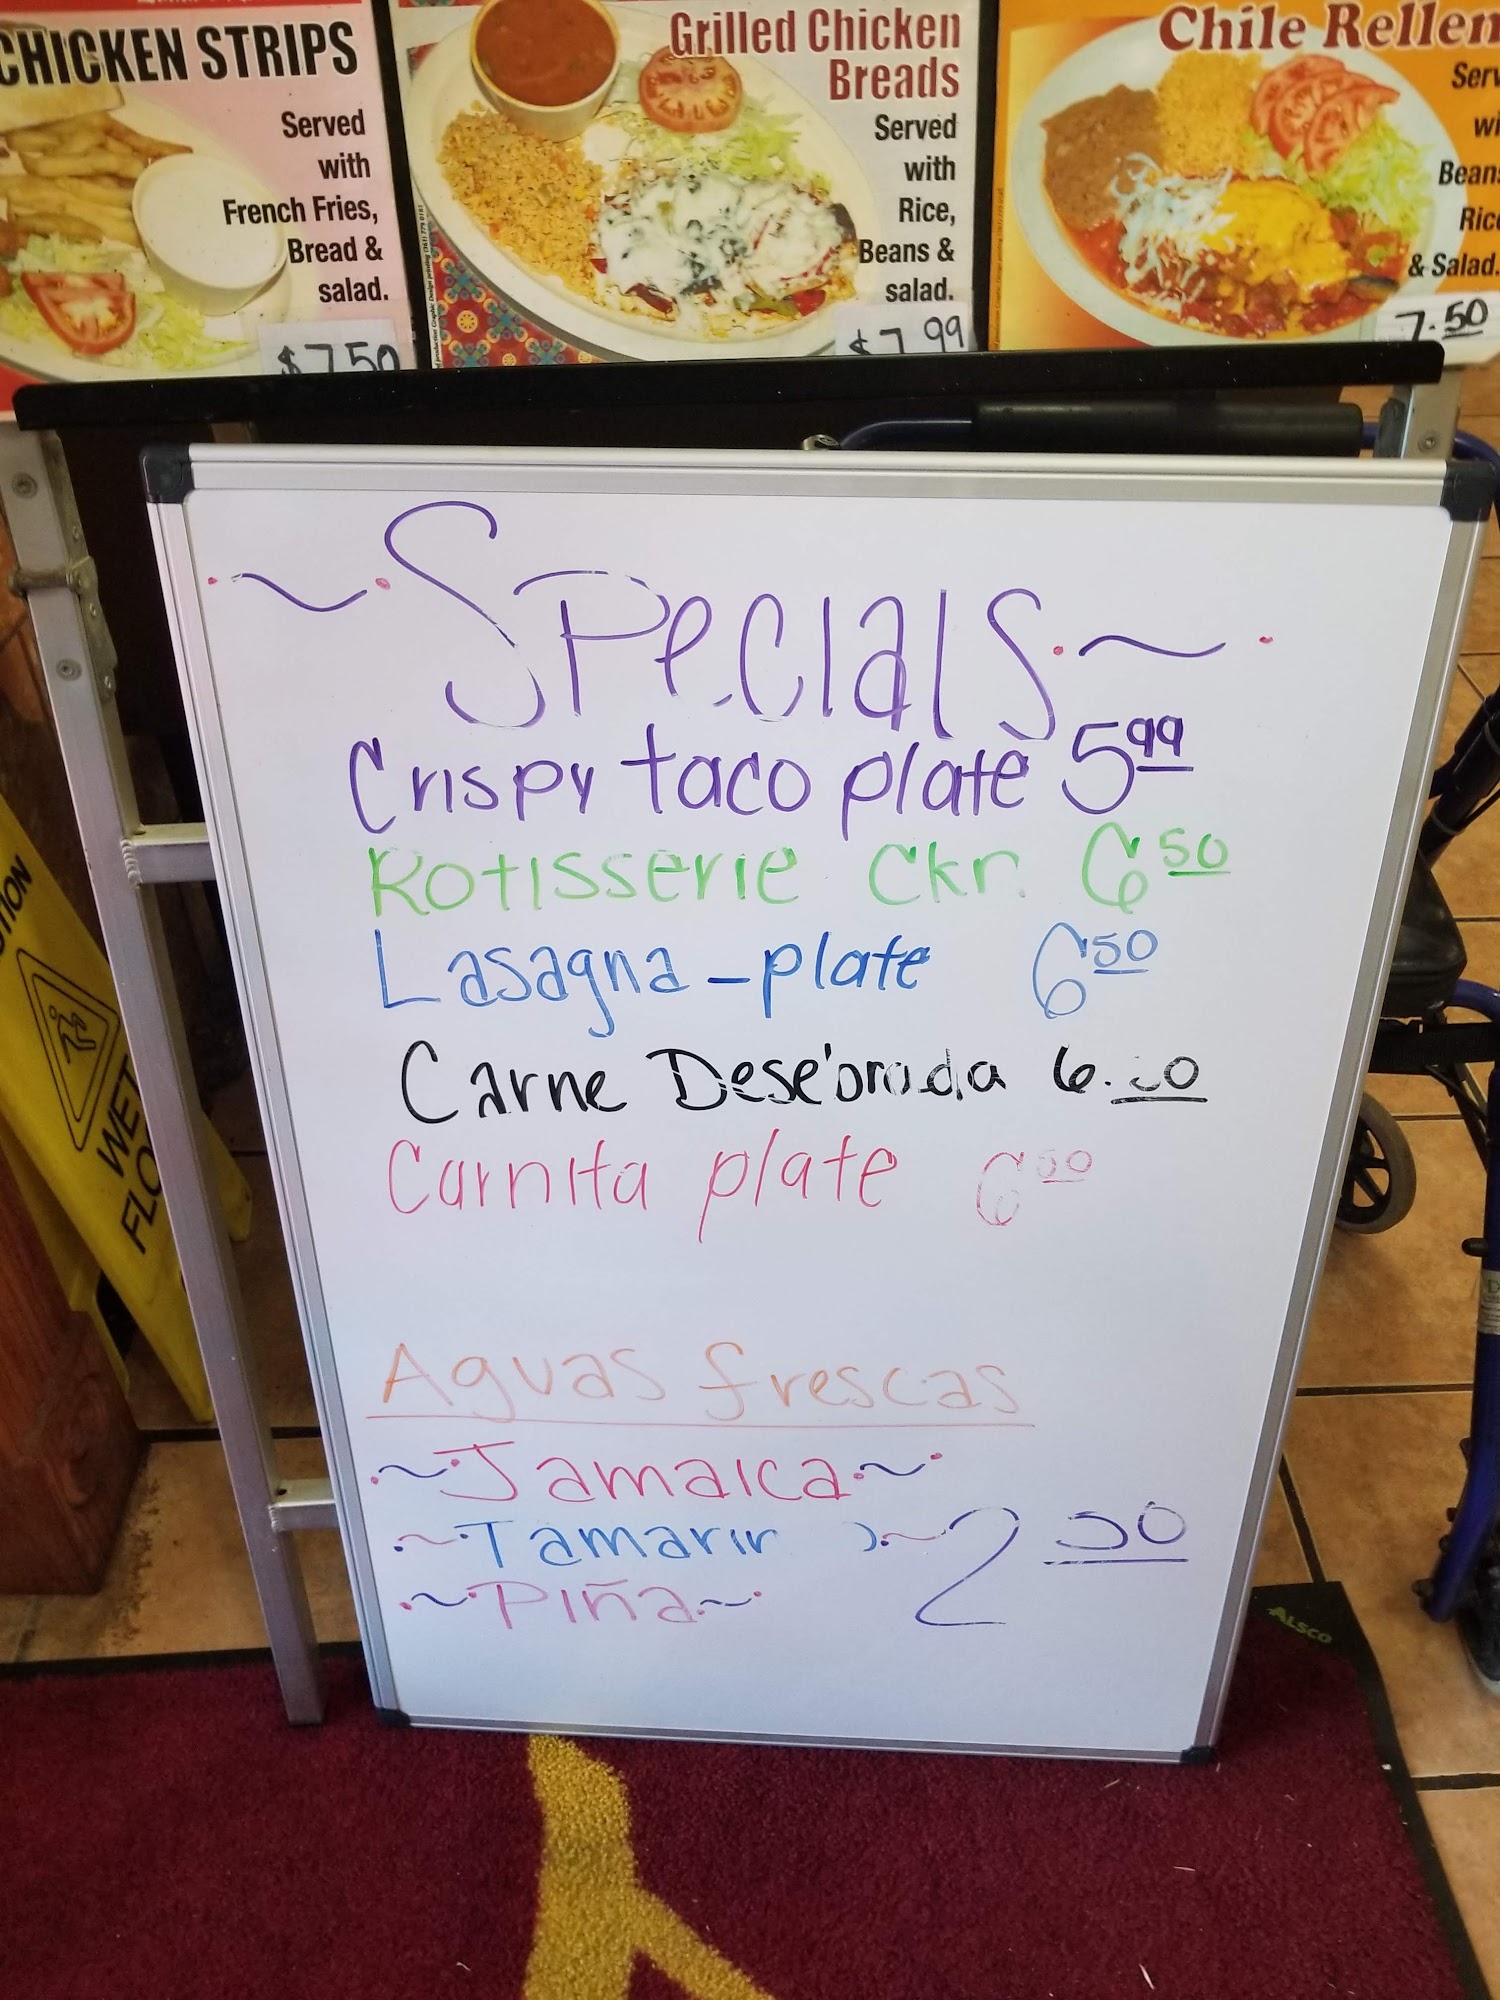 CHICKEN STRIPS
Served
with
French Fries,
Bread &
salad.
$7.50
Grilled Chicken
Breads
Served
with
Rice,
Beans &
salad.
$7.99
Chile Rellen
Serv
wi
Beans
Rice
& Salad.
7.50
~ Specials ~
Crispy taco plate 5.99
Rotisserie Ckn. 6.50
Lasagna - plate 6.50
Carne Desebrada
Carnita plate
Aguas frescas
~ Jamaica ~
~ Tamarin ~ 2.50
~ Piña ~
WET
FLO
ALSCO